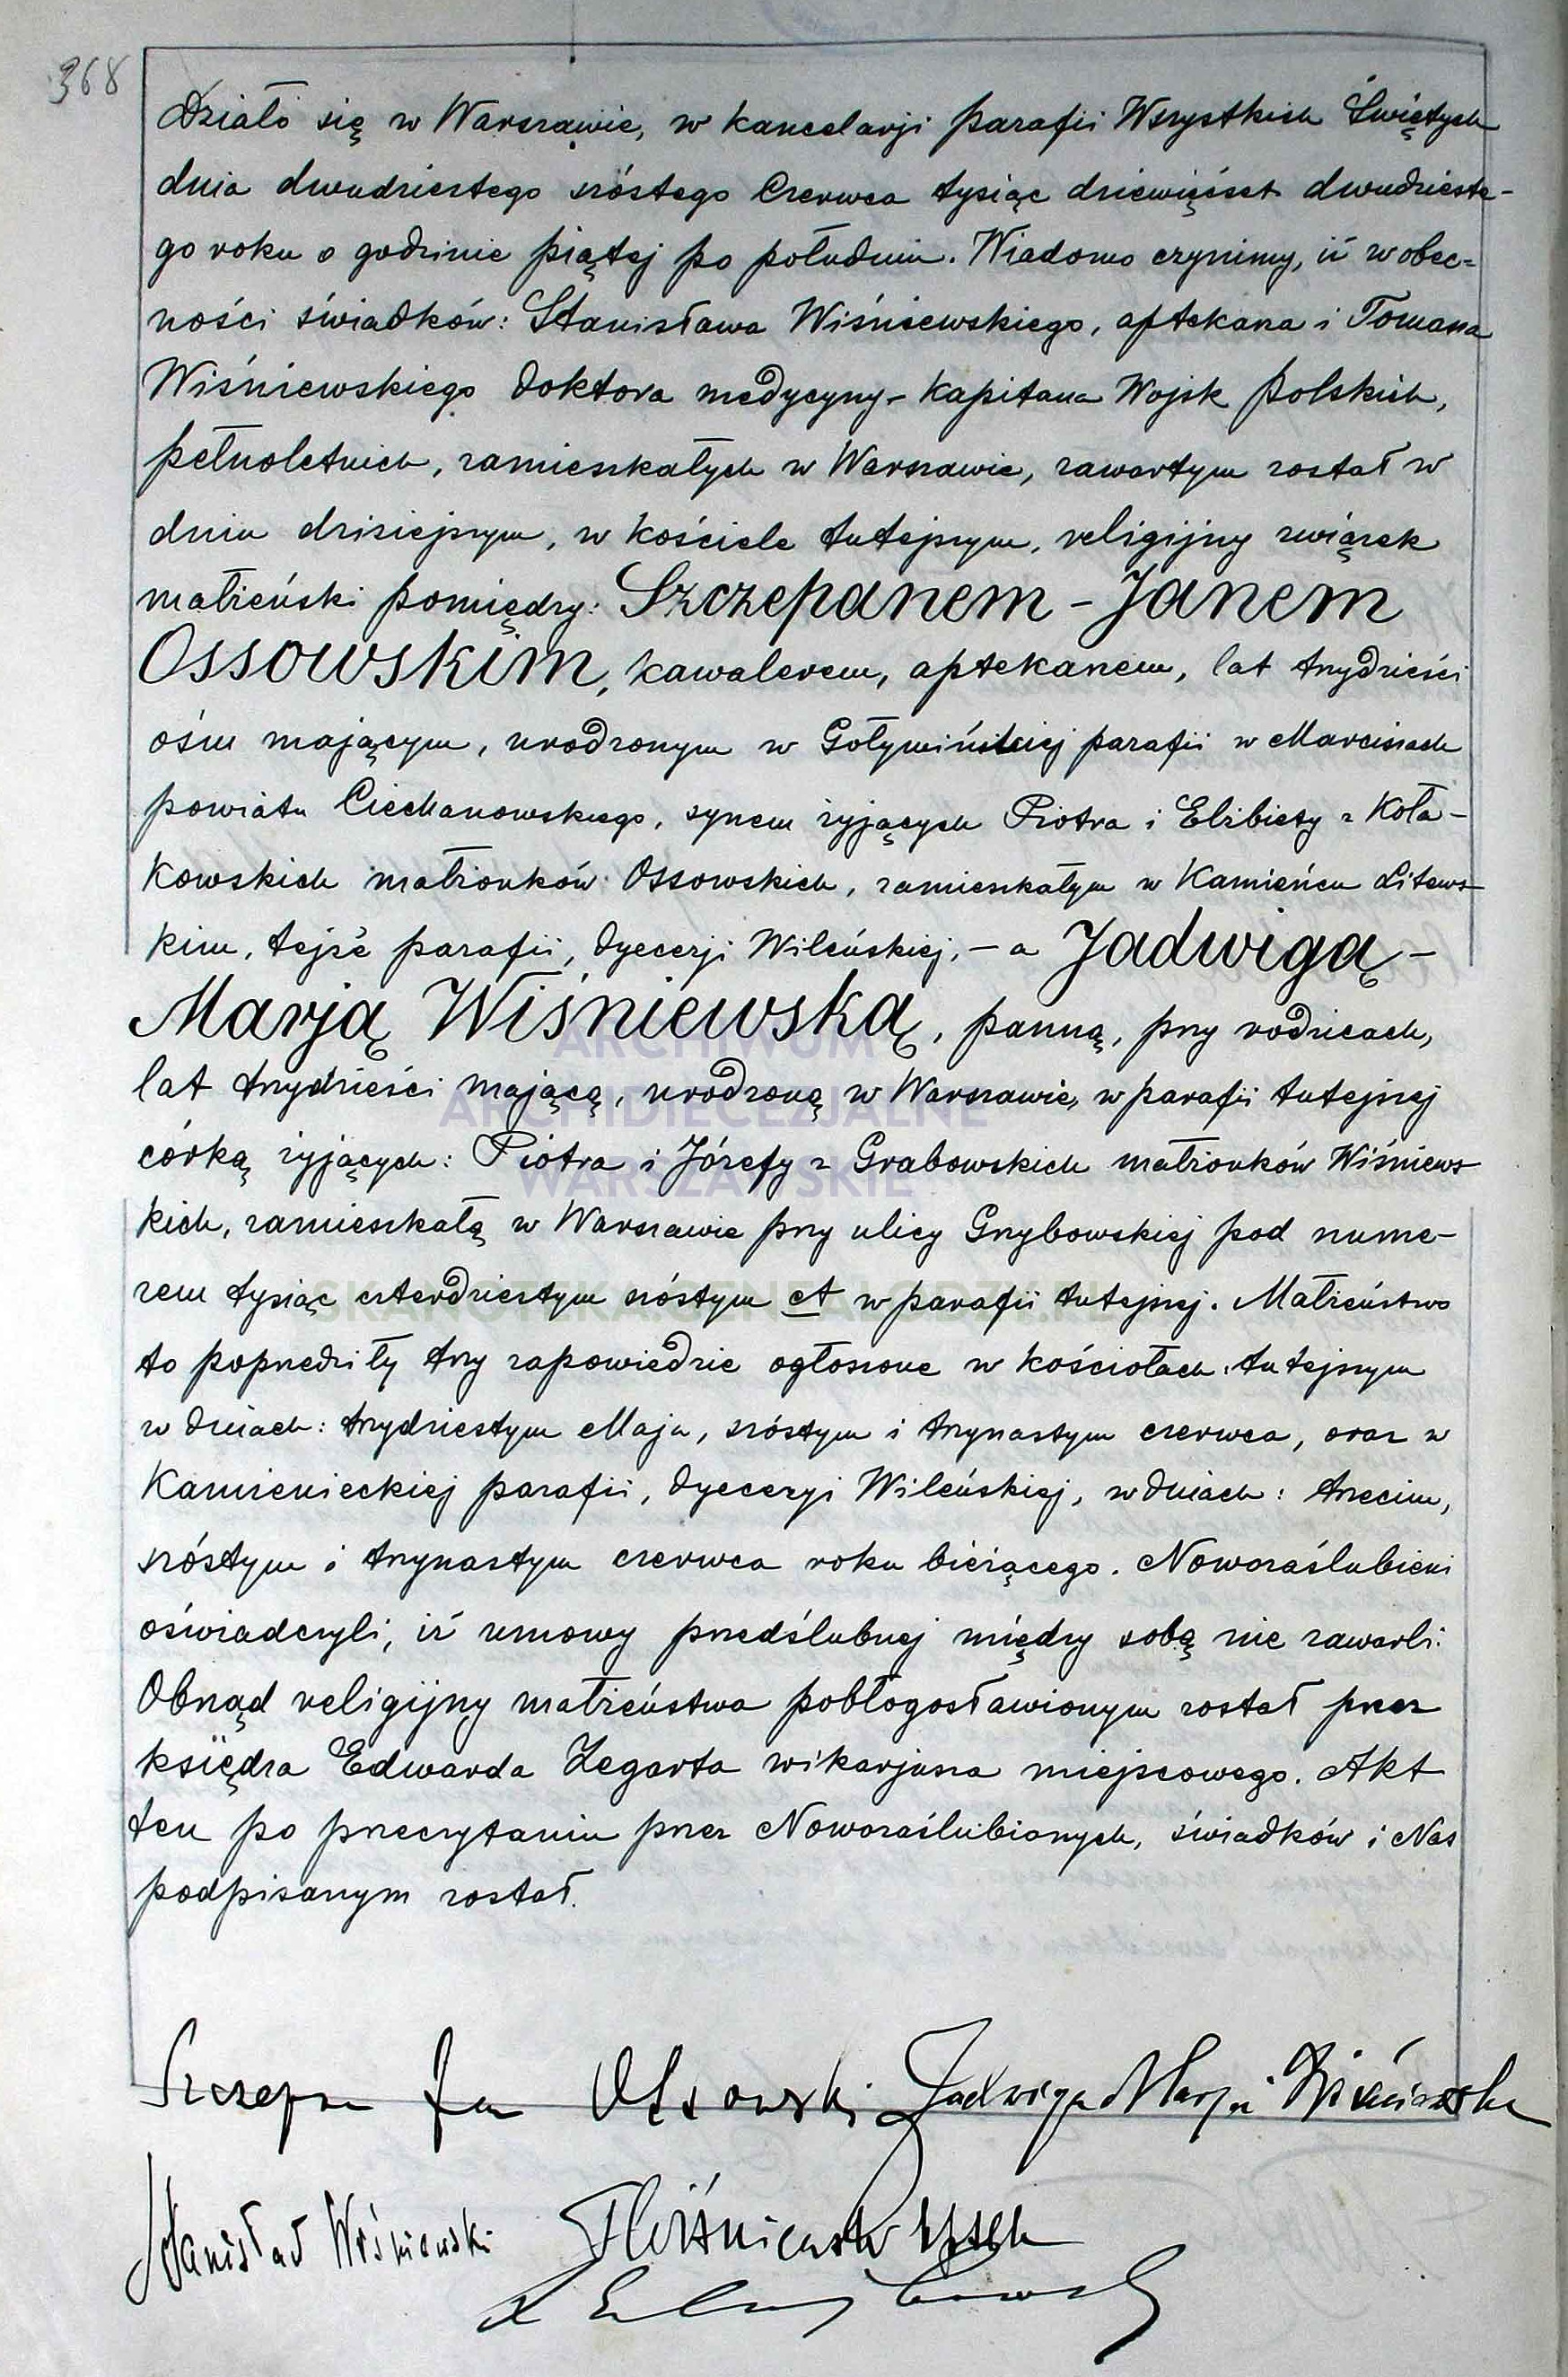 368
Działo się w Warszawie, w kancelarji parafii Wszystkich Świętych
dnia dwudziestego szóstego Czerwca tysiąc dziewięćset dwudzieste-
go roku o godzinie piątej po południu. Wiadomo czynimy, iż w obec-
ności świadków: Stanisława Wiśniewskiego, aptekarza i Tomasza
Wiśniewskiego doktora medycyny - kapitana Wojsk Polskich,
pełnoletnich, zamieszkałych w Warszawie, zawartym został w
dniu dzisiejszym, w kościele tutejszym, religijny związek
małżeński pomiędzy: Szczepanem - Janem
Ossowskim, kawalerem, aptekarzem, lat trzydzieści
ośm mającym, urodzonym w Gołymińskiej parafii w Marcisiach
powiatu Ciechanowskiego, synem żyjących Piotra i Elżbiety z Koła-
kowskich małżonków Ossowskich, zamieszkałym w Kamieńcu Litews-
kim, tejże parafii, dyecezji Wileńskiej, - a Jadwigą -
Marją Wiśniewską, panną, przy rodzicach,
lat trzydzieści mającą, urodzoną w Warszawie, w parafii tutejszej
córką żyjących: Piotra i Józefy z Grabowskich małżonków Wiśniews-
kich, zamieszkałą w Warszawie przy ulicy Grzybowskiej pod nume-
rem tysiąc czterdziestym szóstym A w parafii tutejszej. Małżeństwo
to poprzedziły trzy zapowiedzie ogłoszone w kościołach: tutejszym
w dniach: trzydziestym Maja, szóstym i trzynastym czerwca, oraz w
Kamienieckiej parafii, dyecezyi Wileńskiej, w dniach: trzecim,
szóstym i trzynastym czerwca roku bieżącego. Nowozaślubieni
oświadczyli, iż umowy przedślubnej między sobą nie zawarli.
Obrząd religijny małżeństwa pobłogosławionym został przez
księdza Edwarda Żegarta wikarjusza miejscowego. Akt
ten po przeczytaniu przez Nowozaślubionych, świadków i Nas
podpisanym został.
Szczepan Jan Ossowski Jadwiga Marja Wiśniewska
Stanisław Wiśniewski TWiśniewski
ARCHIWUM
ARCHIDIECEZJALNE
WARSZAWSKIE
SKANOTEKA.GENEALODZY.PL